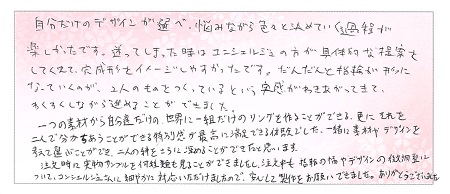 自分だけのデザインが選べ、悩みながら色々と決めていく過程が
楽しかったです。迷ってしまった時はコンシェルジュの方が具体的な提案を
してくれて、完成形をイメージしやすかったです。だんだんと指輪が形に
なっていくのが、2人のものをつくっているという実感がわきあがってきて、
わくわくしながら進めることができました。
一つの素材から自分達だけの、世界に一組だけのリングを作ることができる、更にそれを
二人で分かち合うことができる特別感が最高に満足できる体験でした。一緒に素材やデザインを
考えて選ぶことができ、二人の絆をさらに深めることができたと思います。
注文時に実物サンプルを何種類も見ることができましたし、注文中も指輪の幅やデザインの微調整に
ついて、コンシェルジュさんに細やかに対応いただけましたので、安心して製作をお願いできました。ありがとうございました